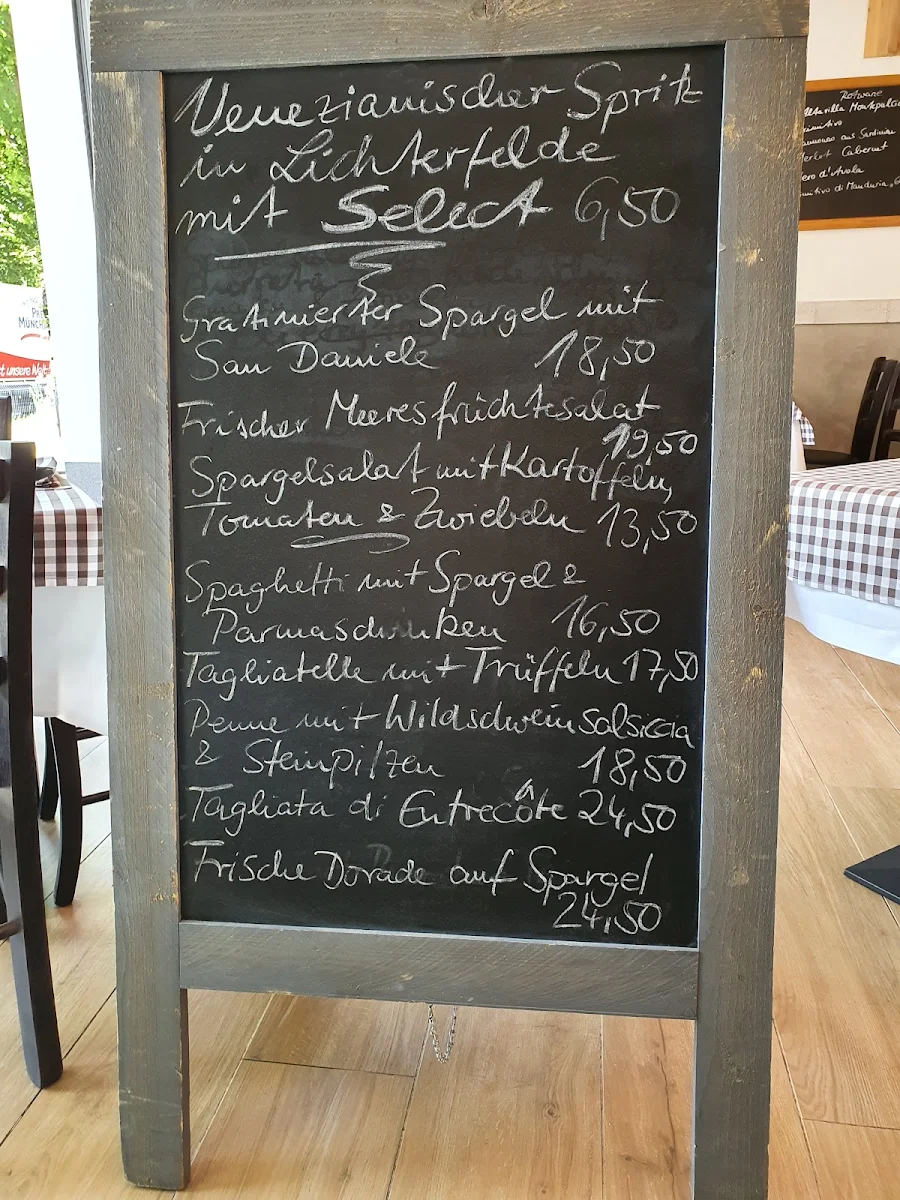 Venezianischer Spritz
in Lichterfelde
mit Select 6,50
Gratinierter Spargel mit
San Daniele 18,50
Frischer Meeresfrüchtesalat
19,50
Spargelsalat mit Kartoffeln,
Tomaten & Zwiebeln 13,50
Spaghetti mit Spargel &
Parmaschinken 16,50
Tagliatelle mit Trüffeln 17,50
Penne mit Wildschweinsalsiccia
& Steinpilzen 18,50
Tagliata di Entrecôte 24,50
Frische Dorade auf Spargel
24,50
Rotweine
Merlot Cabernet
d'Avola
di Manduria
MÜNCH
unsere Welt